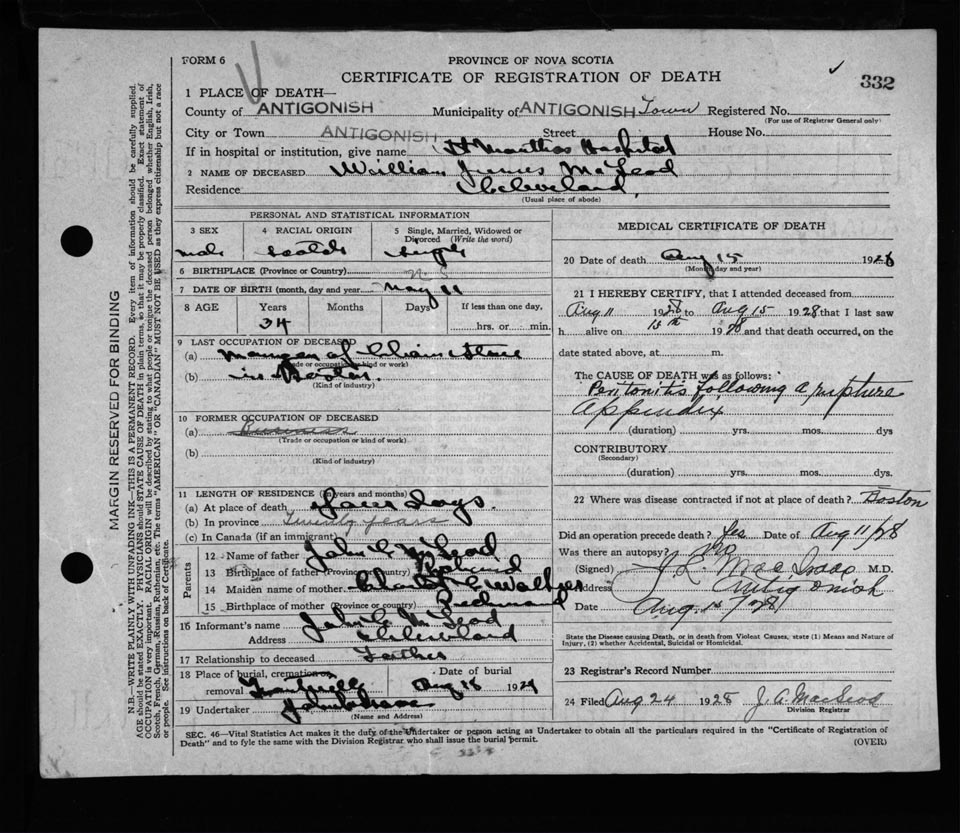 FORM 6
PROVINCE OF NOVA SCOTIA
CERTIFICATE OF REGISTRATION OF DEATH
332
1 PLACE OF DEATH—
County of ANTIGONISH Municipality of ANTIGONISH Town Registered No.
(For use of Registrar General only)
City or Town ANTIGONISH Street House No.
If in hospital or institution, give name St Marthas Hospital
2 NAME OF DECEASED William James McLeod
Residence Cleveland
(Usual place of abode)
PERSONAL AND STATISTICAL INFORMATION
3 SEX 4 RACIAL ORIGIN 5 Single, Married, Widowed or Divorced (Write the word)
male Scotch single
6 BIRTHPLACE (Province or Country) N. S.
7 DATE OF BIRTH (month, day and year May 11
8 AGE Years Months Days If less than one day,
34 hrs. or min.
9 LAST OCCUPATION OF DECEASED
(a) Manager of Chain Store
(Trade or occupation or kind of work)
(b) in Boston.
(Kind of industry)
10 FORMER OCCUPATION OF DECEASED
(a) Business
(Trade or occupation or kind of work)
(b)
(Kind of industry)
11 LENGTH OF RESIDENCE (In years and months)
(a) At place of death four days
(b) In province Twenty years
(c) In Canada (if an immigrant)
Parents
12 Name of father John G McLeod
13 Birthplace of father (Province or country)
14 Maiden name of mother
15 Birthplace of mother (Province or country) Richmond
16 Informant's name John G McLeod
Address Cleveland
17 Relationship to deceased Father
18 Place of burial, cremation or removal Date of burial Aug 18 192
19 Undertaker
(Name and Address)
MEDICAL CERTIFICATE OF DEATH
20 Date of death Aug 15 1928
(Month, day and year)
21 I HEREBY CERTIFY, that I attended deceased from
Aug 11 1928 to Aug 15 1928 that I last saw
h alive on 15th 1928 and that death occurred, on the
date stated above, at m.
The CAUSE OF DEATH was as follows:
Peritonitis following a rupture
Appendix
(duration) yrs. mos. dys
CONTRIBUTORY
(Secondary)
(duration) yrs. mos. dys.
22 Where was disease contracted if not at place of death? Boston
Did an operation precede death? Yes Date of Aug 11/28
Was there an autopsy? No
(Signed) J. L. MacIsaac M.D.
Address Antigonish
Date Aug 15/28
State the Disease causing Death, or in death from Violent Causes, state (1) Means and Nature of
Injury, (2) whether Accidental, Suicidal or Homicidal.
23 Registrar's Record Number
24 Filed Aug 24 1928 J. A. MacLeod
Division Registrar
SEC. 46—Vital Statistics Act makes it the duty of the Undertaker or person acting as Undertaker to obtain all the particulars required in the "Certificate of Registration of
Death" and to fyle the same with the Division Registrar who shall issue the burial permit.
(OVER)
MARGIN RESERVED FOR BINDING
N.B.—WRITE PLAINLY WITH UNFADING INK—THIS IS A PERMANENT RECORD. Every item of information should be carefully supplied.
AGE should be stated EXACTLY. PHYSICIANS should STATE CAUSE OF DEATH in plain terms, so that it may be properly classified. Exact statement of
OCCUPATION is very important. RACIAL ORIGIN will be described by stating to what people or tongue the deceased person belonged whether English, Irish,
Scotch, French, German, Russian, Ruthenian, etc. The terms "AMERICAN" OR "CANADIAN" MUST NOT BE USED as they express citizenship but not a race
or people. See instructions on back of Certificate.